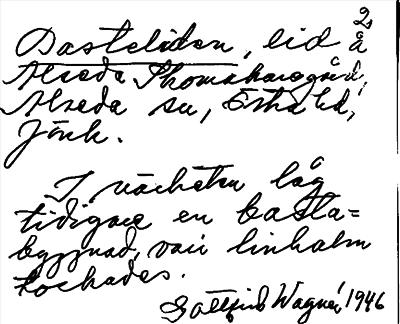 2.
Basteliden, lid å
Alseda Thomasharggård,
Alseda sn, Östra hd,
Jönk.
I närheten låg
tidigare en basta=
byggnad, vari linhalm
torkades.
Gottfrid Wagnér 1946